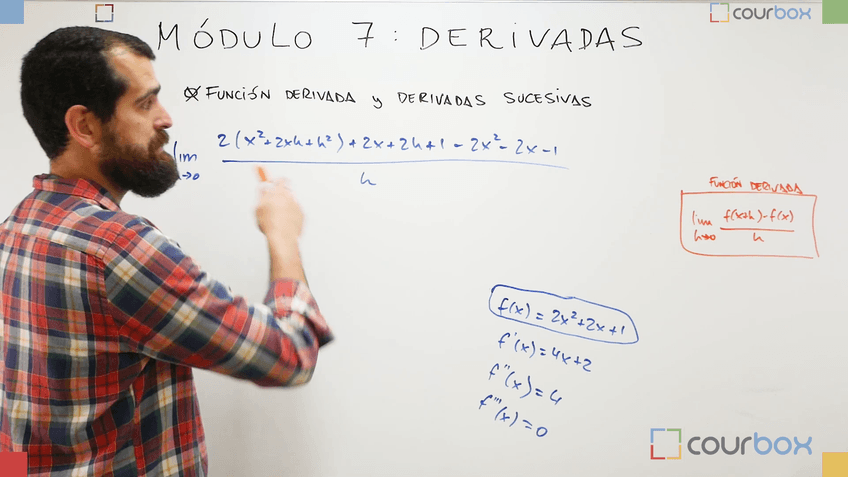 courbox
MÓDULO 7: DERIVADAS
FUNCIÓN DERIVADA y DERIVADAS SUCESIVAS
lim 2(x²+2xh+h²)+2x+2h+1-2x²-2x-1
h→0 h
FUNCIÓN DERIVADA
lim f(x+h)-f(x)
h→0 h
f(x)=2x²+2x+1
f'(x)=4x+2
f''(x)=4
f'''(x)=0
courbox